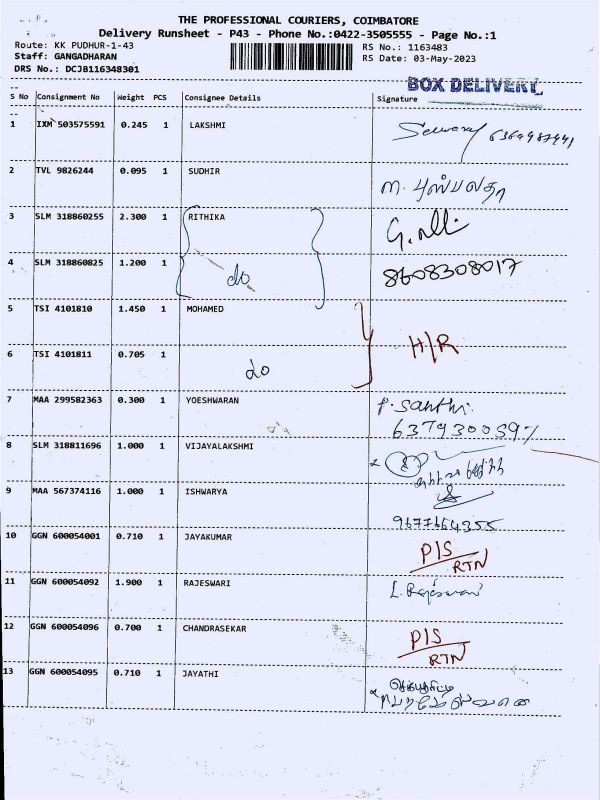 THE PROFESSIONAL COURIERS, COIMBATORE
Delivery Runsheet - P43 - Phone No.:0422-3505555 - Page No.:1
Route: KK PUDHUR-1-43 RS No.: 1163483
Staff: GANGADHARAN RS Date: 03-May-2023
DRS No.: DCJB116348301
BOX DELIVERY
S No Consignment No Weight PCS Consignee Details Signature
1 IXM 503575591 0.245 1 LAKSHMI
2 TVL 9826244 0.095 1 SUDHIR
m. புஸ்பலதா
3 SLM 318860255 2.300 1 RITHIKA
4 SLM 318860825 1.200 1 do 8608308017
5 TSI 4101810 1.450 1 MOHAMED
H/R
6 TSI 4101811 0.705 1 do
7 MAA 299582363 0.300 1 YOESHWARAN P. Santhi
8 SLM 318811696 1.000 1 VIJAYALAKSHMI
9 MAA 567374116 1.000 1 ISHWARYA
9677664355
10 GGN 600054001 0.710 1 JAYAKUMAR P/S
RTN
11 GGN 600054092 1.900 1 RAJESWARI L. Rajeswari
12 GGN 600054096 0.700 1 CHANDRASEKAR P/S
RTN
13 GGN 600054095 0.710 1 JAYATHI